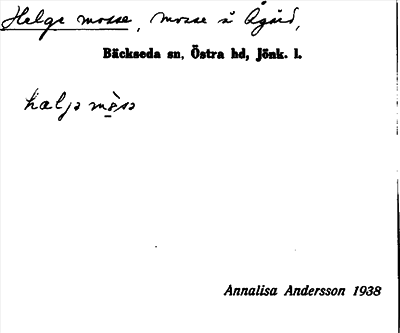 Helge mosse, mosse i Ågård,
Bäckseda sn, Östra hd, Jönk. l.
hæljə mòsə
Annalisa Andersson 1938